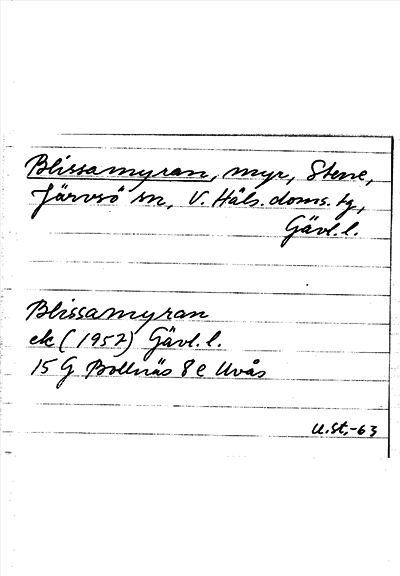 Blissamyran, myr, Stene,
Järvsö sn, V. Häls. doms. tg,
Gävl. l.
Blissamyran
ek (1957) Gävl. l.
15 G Bollnäs 8 e Uvås
U.St.-63